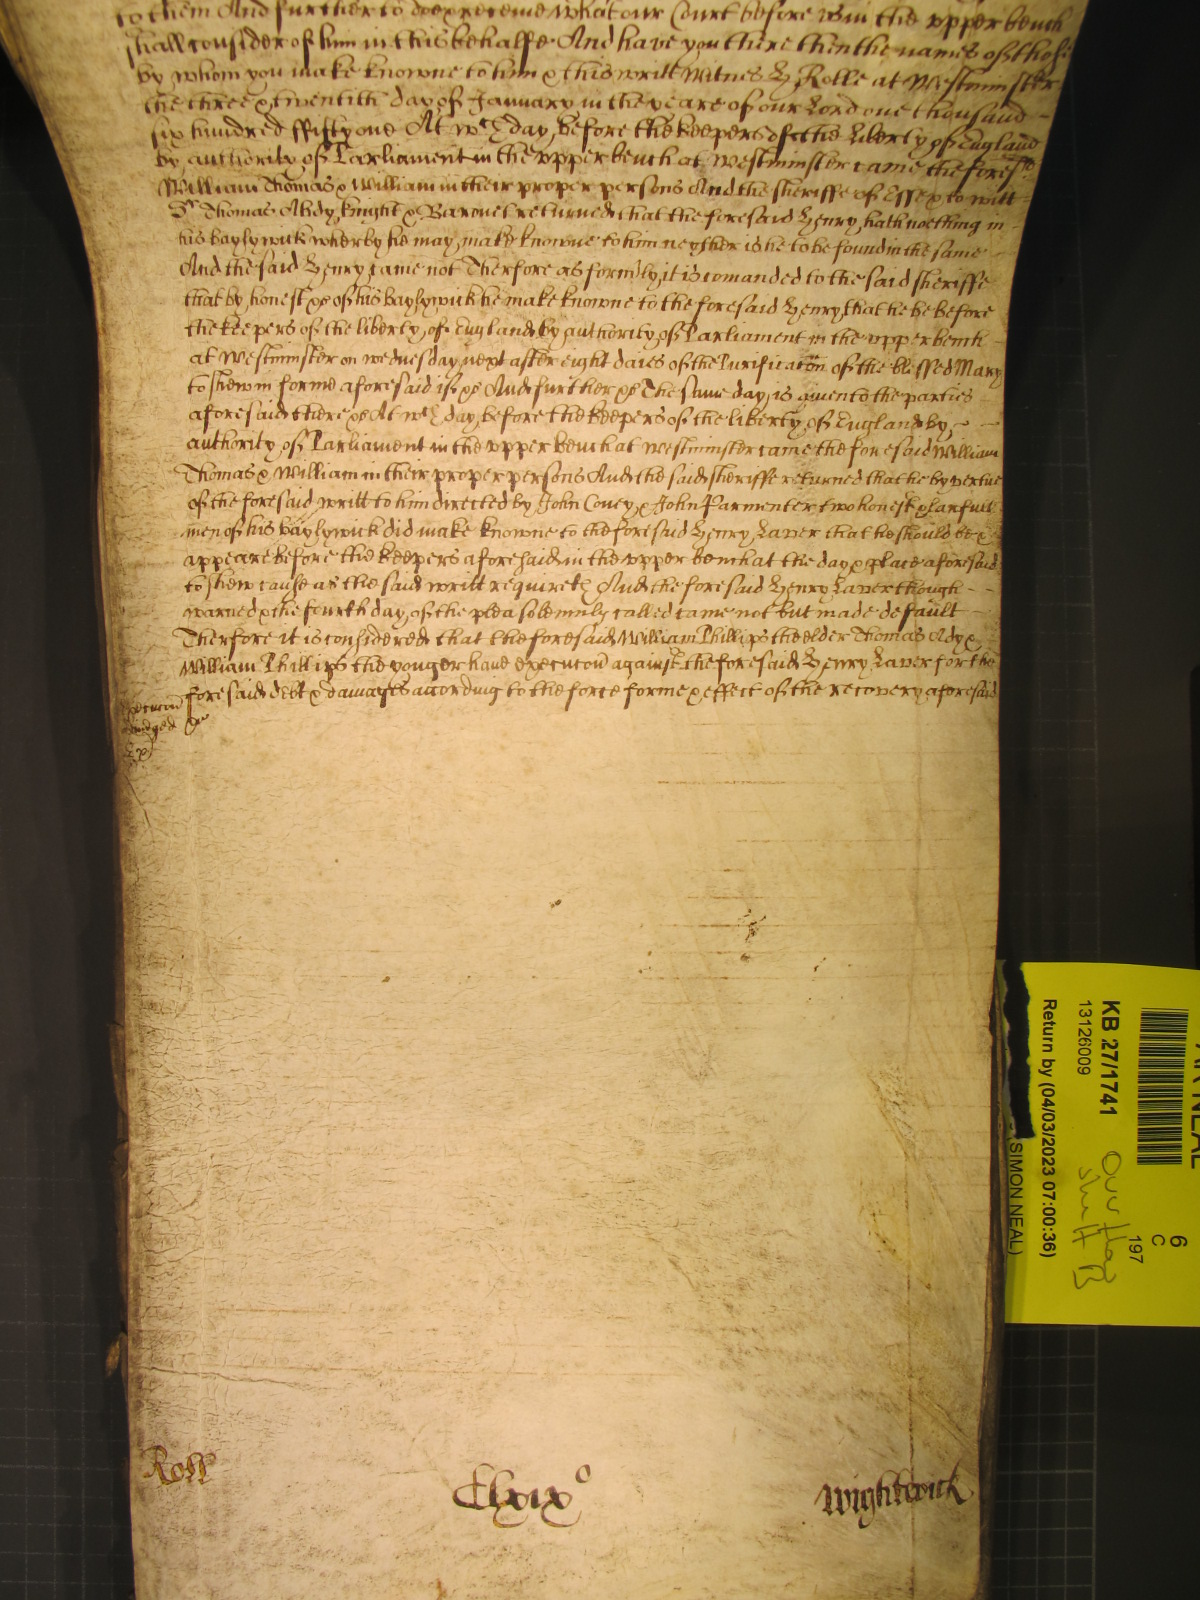 to them And further to doe & receive what our Court before us in the upper bench
shall consider of him in this behalfe And have you there then the names of those
by whom you make knowne to him & this writt Witnes H Rolle at Westminster
the three & twentith day of January in the yeare of our Lord one thousand
six hundred ffifty one At wch day before the keepers of the liberty of England
by authority of Parliament in the upper bench at Westminster came the foresd
William Thomas & William in their proper persons And the sheriffe of Essex to witt
Sr Thomas Abdy knight & Baronet returned that the foresaid Henry hath noething in
his baylywick wherby he may make knowne to him neyther is he to be found in the same
And the said Henry came not Therfore as formly it is comanded to the said sheriffe
that by honest &c of his baylywick he make knowne to the foresaid Henry that he be before
the keepers of the liberty of England by authority of Parliament in the upper bench
at Westminster on wednesday next after eight daies of the Purification of the blessed Mary
to shew in forme aforesaid if &c And further &c The same day is given to the parties
aforesaid there &c At wch day before the keepers of the liberty of England by
authority of Parliament in the upper bench at westminster came the foresaid William
Thomas & William in their proper persons And the said sheriffe returned that he by vertue
of the foresaid writt to him directed by John Coney & John Parmenter two honest & lawfull
men of his baylywick did make knowne to the foresaid Henry Laver that he should be &
appeare before the keepers aforesaid in the upper bench at the day & place aforesaid
to shew cause as the said writt requireth And the foresaid Henry Laver though
warned & the fourth day of the plea solemnly called came not but made default
Therfore it is considered that the foresaid William Phillips the elder Thomas Ady &
William Phillips the yonger have execucon against the foresaid Henry Laver for the
foresaid debt & damages according to the force forme & effect of the recovery aforesaid
&c
Roll
Clxix o
Wightwick
KB 27/1741
13126009
Return by (04/03/2023 07:00:36)
(SIMON NEAL)
6
C
197